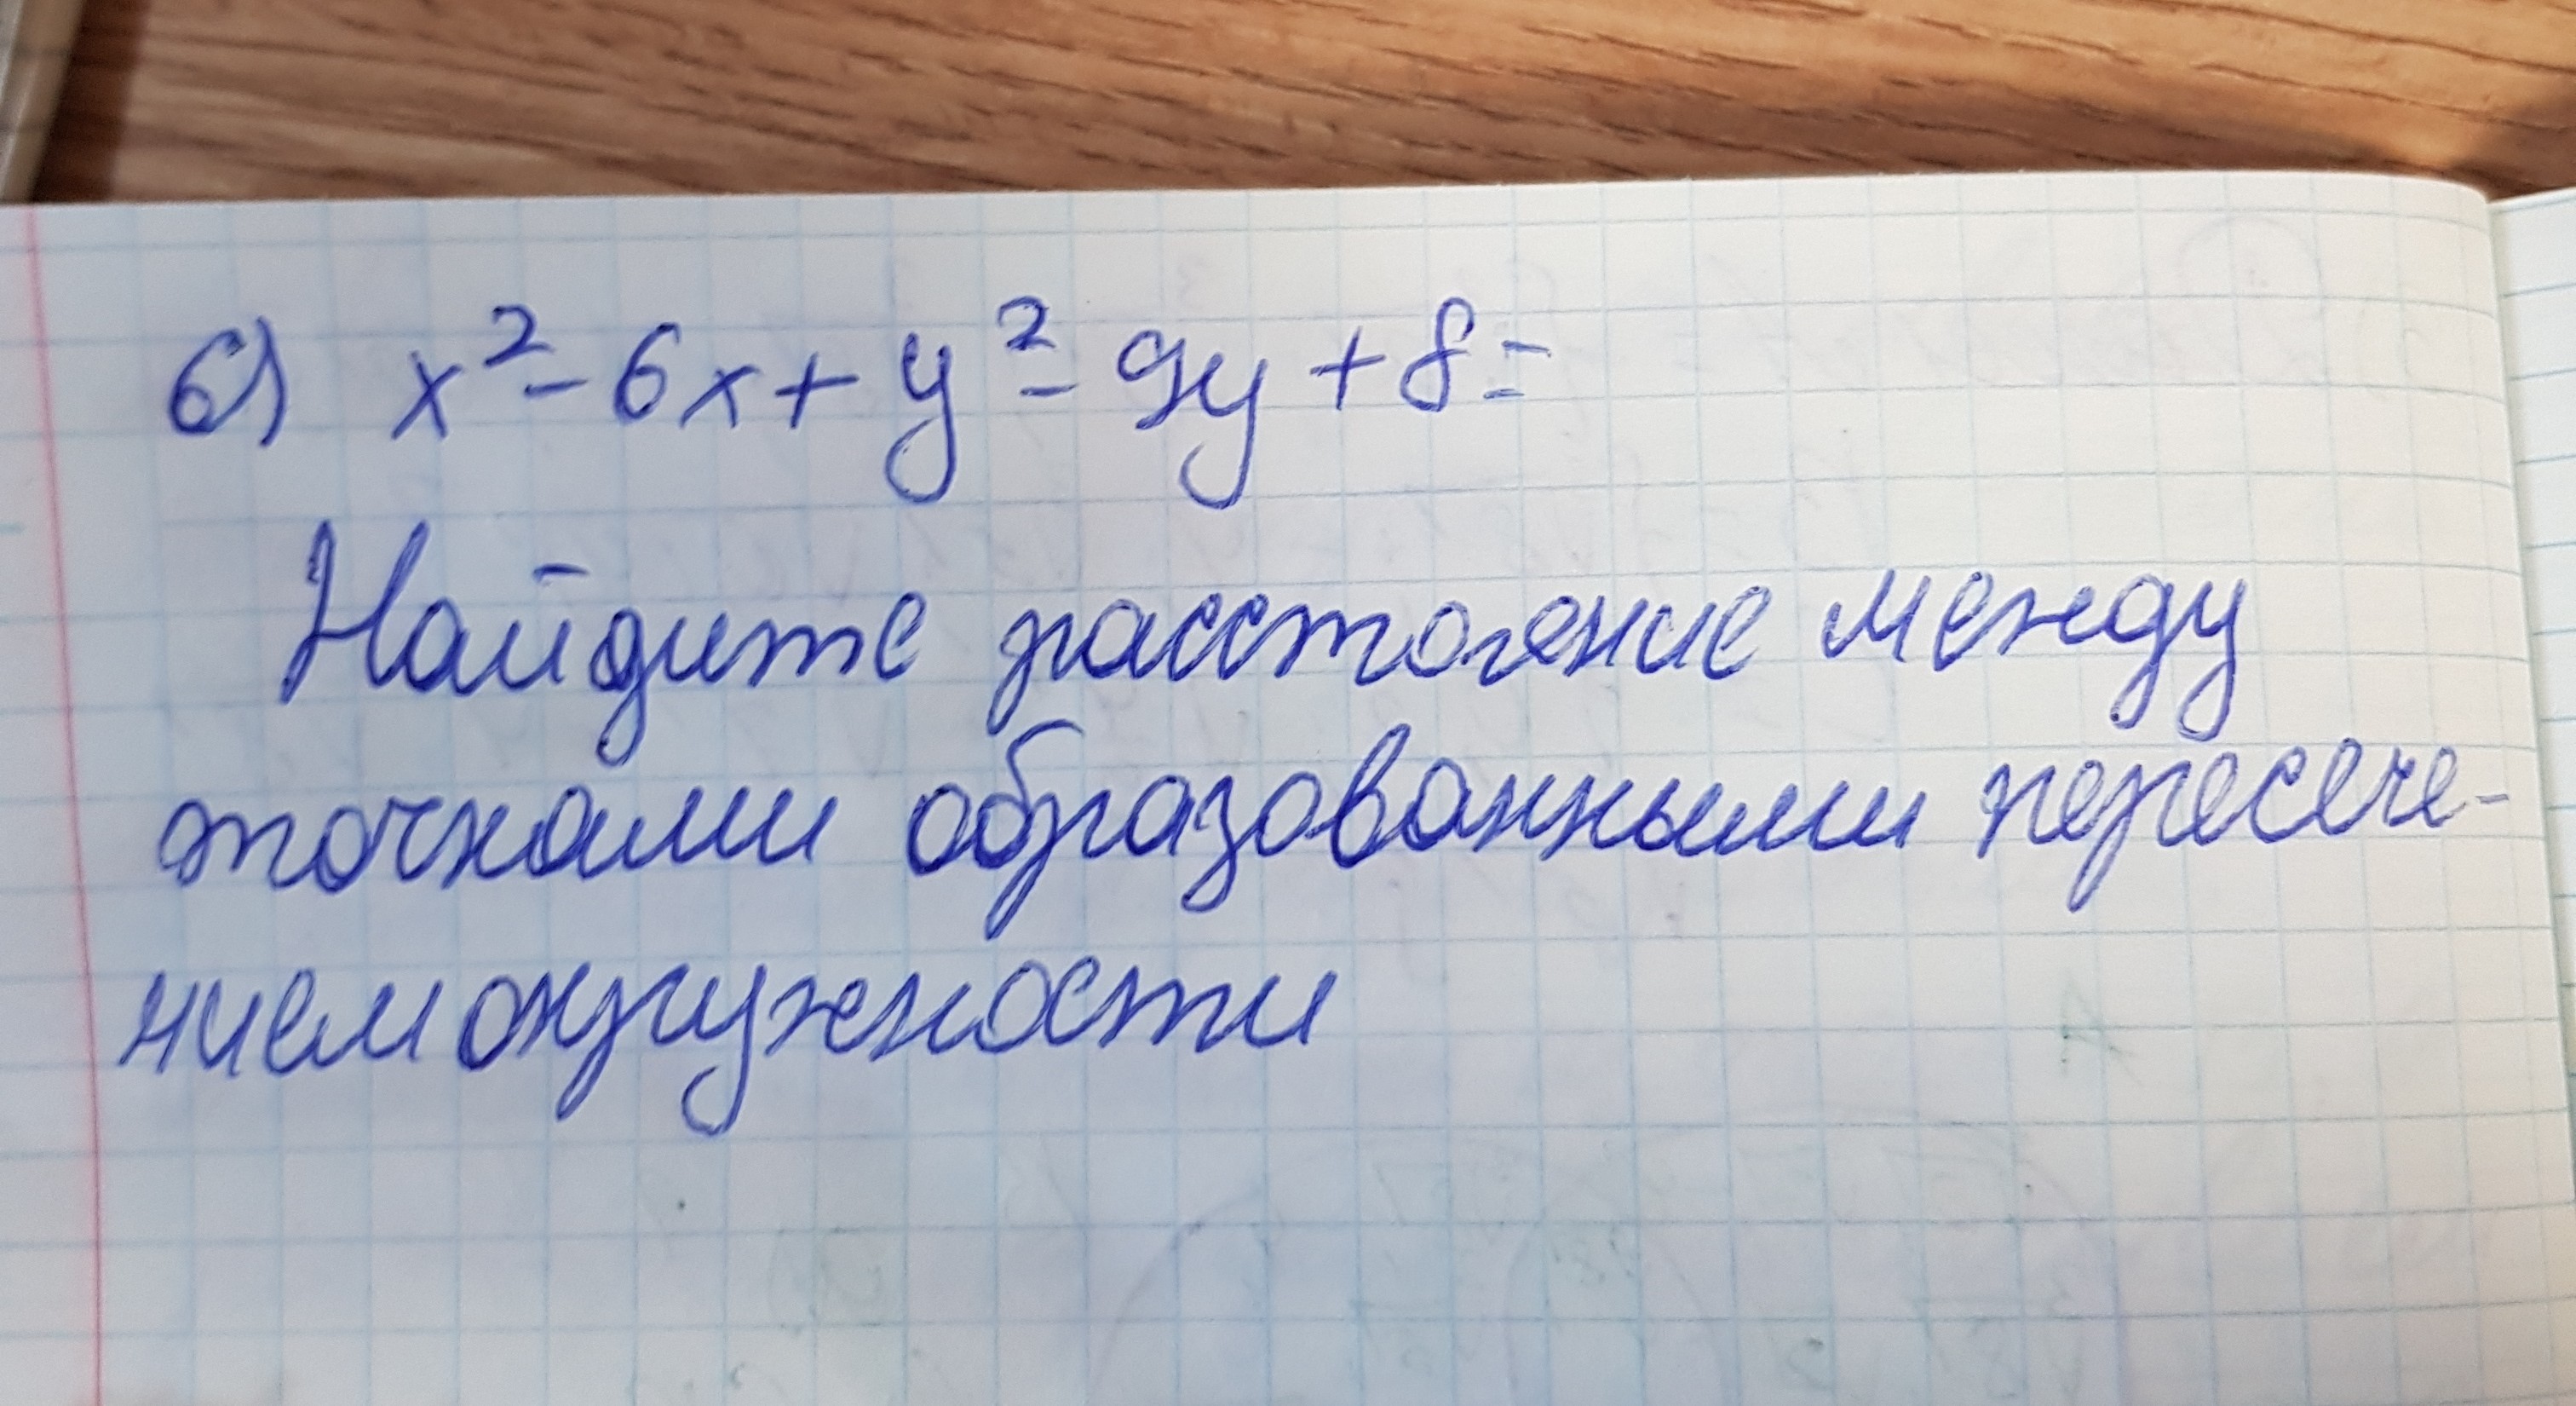 б) x² - 6x + y² - 9y + 8 =
Найдите расстояние между
точками образованными пересече-
нием окружности